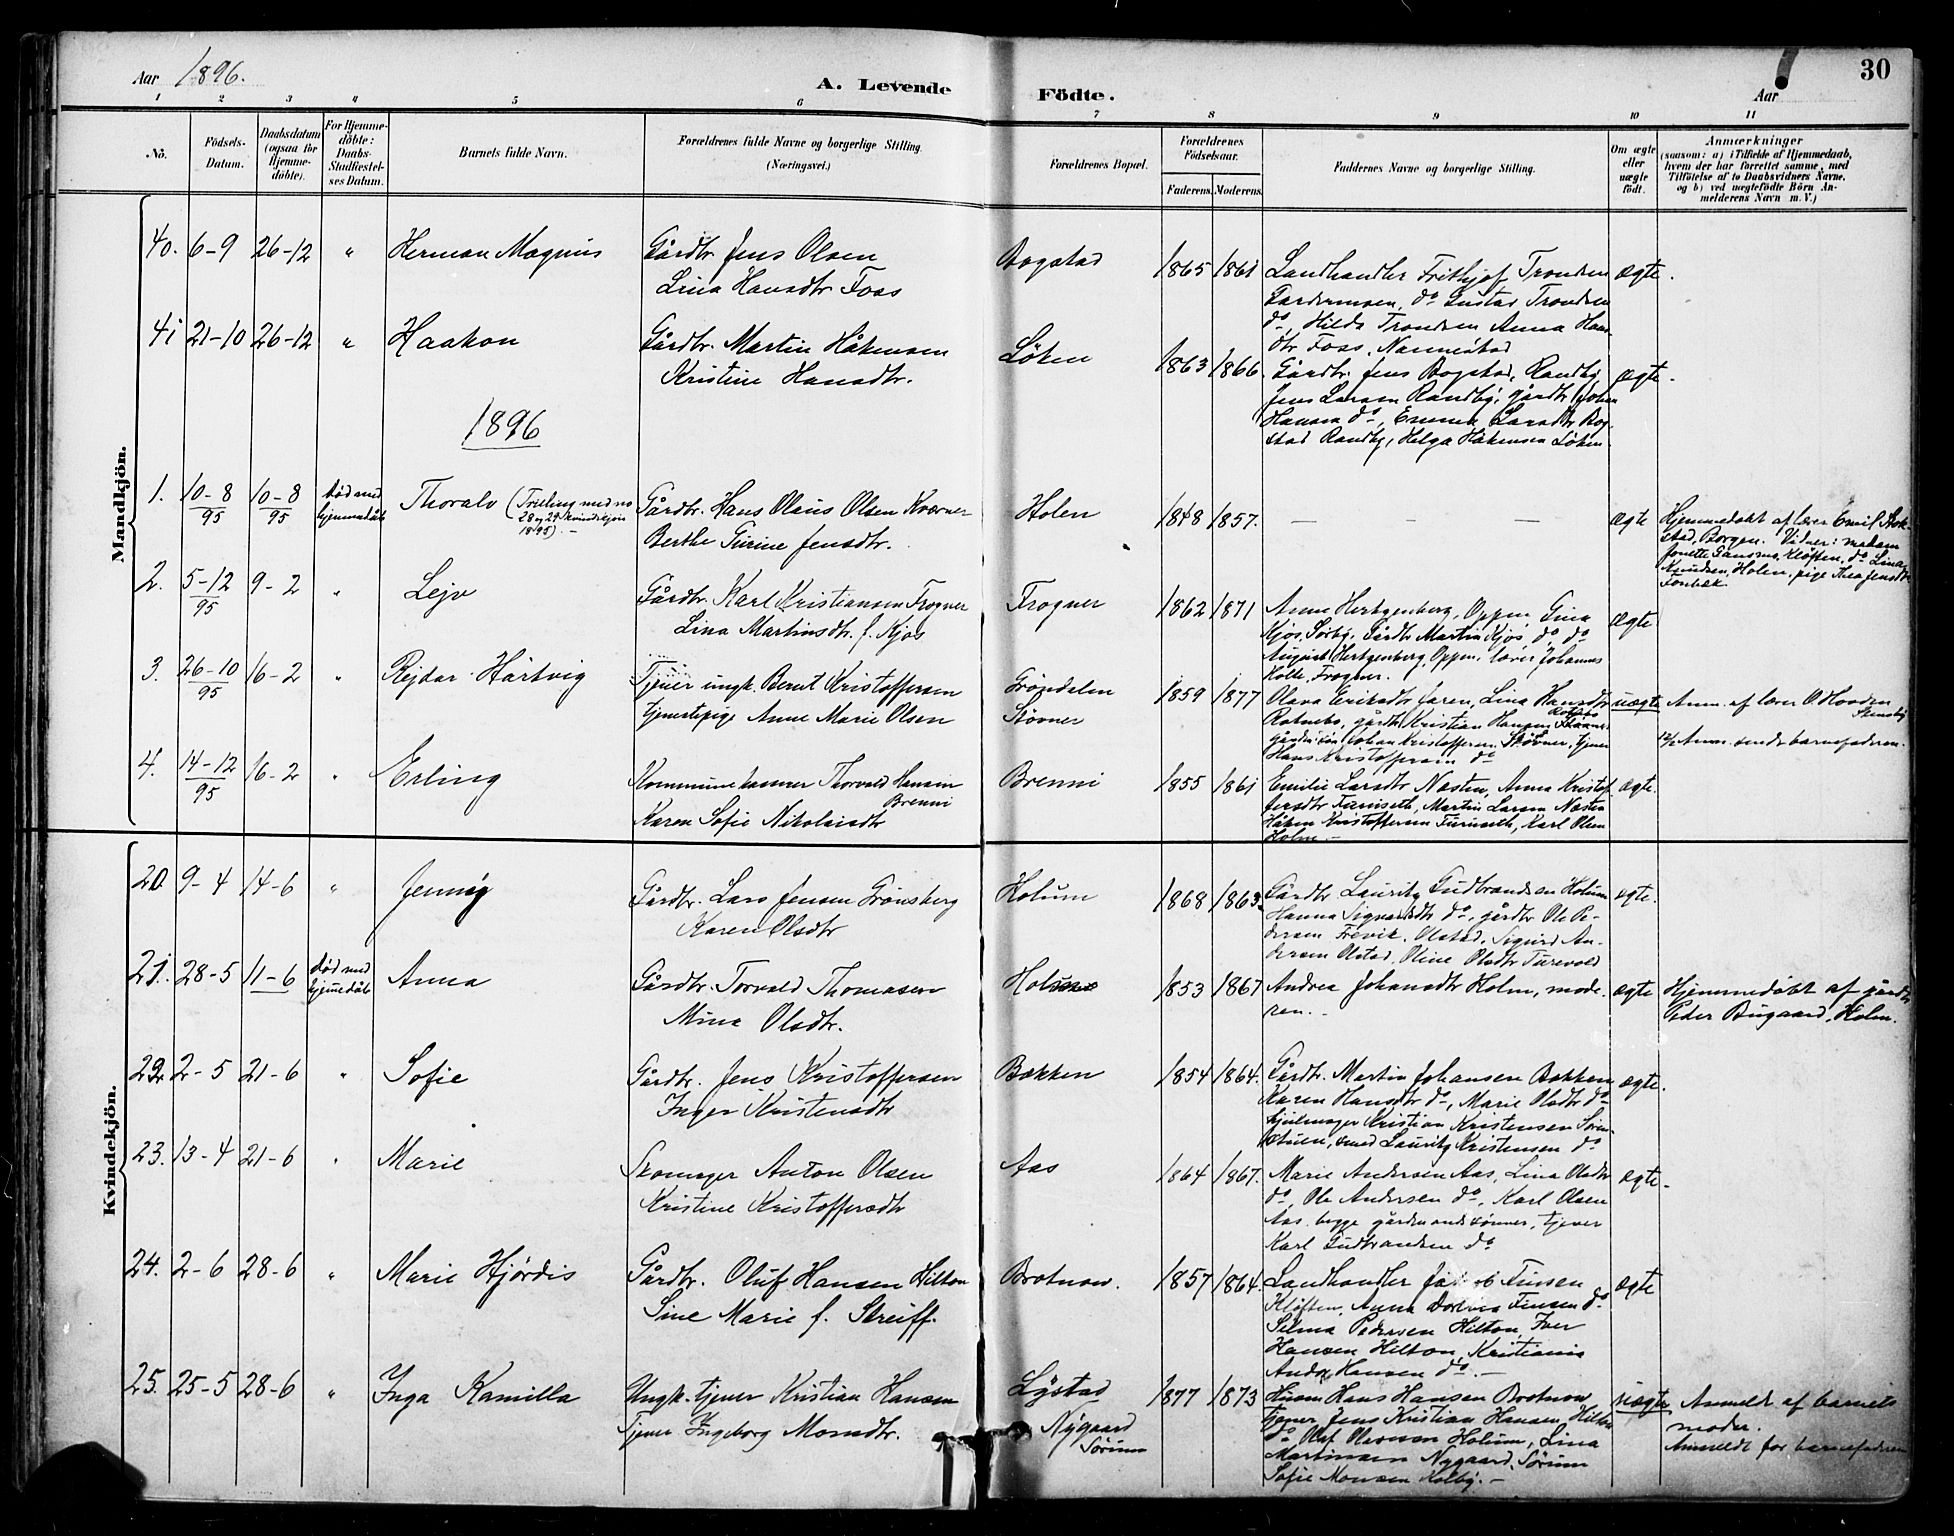 Aar 1896.
A. Levende Födte.
Aar
30
1 2 3 4 5 6 7 8 9 10 11
No.
Födsels-Datum.
Daabsdatum (ogsaa for Hjemme-döbte).
For Hjemme-döbte: Daabs-Stadfæstel-ses Datum.
Barnets fulde Navn.
Forældrenes fulde Navne og borgerlige Stilling. (Næringsvei.)
Forældrenes Bopæl.
Forældrenes Födselsaar.
Faderens. Moderens.
Faddernes Navne og borgerlige Stilling.
Om ægte eller uægte födt.
Anmærkninger
(saasom: a) i Tilfælde af Hjemmedaab,
hvem der har forrettet samme, med
Tilföielse af to Daabsvidners Navne,
og b) ved uægtefödte Börn An-
melderens Navn m. V.)
Mandkjön.
40. 6-9 26-12 " Herman Magnus
Gårdbr. Jens Olsen
Lina Hansdtr Foss
Bogstad 1865 1861
Landhandler Frithjof Trondsen
Gardermoen, do Gustav Trondsen
do, Hilda Trondsen Anna Hans-
dtr Foss, Nannestad
ægte.
41 21-10 26-12 " Haakon
Gårdbr. Martin Håkensen
Kristine Hansdtr.
Löken 1863 1866.
Gårdbr. Jens Bogstad, Randby
Jens Larsen Randby, gårdbr Johan
Hansen do, Emma Larsdtr Bog-
stad Randby, Helga Håkensen Löken.
ægte.
1896
1. 10-8/95 10-8/95 död med hjemmedåb Thoralv (Trilling med no 28 og 29 kvindekjön 1895).-
Gårdbr. Hans Olaus Olsen Kværner
Berthe Turine Jensdtr.
Holen 1848 1857. — — —
ægte
Hjemmedöbt af lærer Emil Ask-
stad, Borgen. Vidner: madam
Jonette Gansmo, Klöften, do Lina
Knudsen, Holen, pige Thea Jensdtr
Fonbæk
2. 5-12/95 9-2 " Lejv
Gårdbr. Karl Kristiansen Frogner
Lina Martinsdtr. f. Kjos
Frogner 1862 1871
Anne Hertzenberg, Oppen, Gina
Kjos, Sörby, Gårdbr Martin Kjos do, do
August Hertzenberg, Oppen, lærer Johannes
Holte, Frogner.
ægte
3. 26-10/95 16-2 " Rejdar Hartvig
Tjener ungk. Bernt Kristoffersen
tjenestepige Anne Marie Olsen
Gröndalen
Stövner
1859 1877
Olava Eriksdtr Faren, Lina Hansdtr
Rotnebo, gårdbr Kristian Hansen
gårdm.sön Johan Kristoffersen Stövner, tjener
Hans Kristoffersen do
uægte
Anm. af lærer O. Hovden
Stensby
12/2 Anm. sendt barnefaderen.
4. 14-12/95 16-2 " Erling
Kommunekasserer Thorvald Hansen
Brenni
Karen Sofie Nikolaisdtr
Brenni 1855 1861
Emilie Larsdtr Næsten, Anna Kristof-
fersdtr Furuseth, Martin Larsen Næsten
Håken Kristoffersen Furuseth, Karl Olsen
Holm.-
ægte.
Kvindekjön.
20. 9-4 14-6 " Jenny
Gårdbr. Lars Jensen Grönsberg
Karen Olsdtr
Holum 1868 1863.
Gårdbr Lauritz Gudbrandsen Holum
Hanna Sigvartsdtr do, gårdbr Ole Pe-
dersen Frevik, Olstad, Sigurd An-
dersen Olstad, Oline Olsdtr Turevold
ægte.
21. 28-5 11-6 död med hjemmedåb Anna
Gårdbr. Torvald Thomasen
Mina Olsdtr.
Holm 1853 1867
Andrea Johansdtr Holm, mode-
ren.-
ægte
Hjemmedöbt af gårdbr
Peder Bugaard, Holm.
22. 2-5 21-6 " Sofie
Gårdbr. Jens Kristoffersen
Inger Kristensdtr
Bakken 1854 1864.
Gårdbr. Martin Johansen Bakken
Karen Hansdtr do, Marie Olsdtr do
hjulmager Kristian Kristensen Sören-
stuen, smed Lauritz Kristensen do
ægte.
23. 13-4 21-6 " Marie
Skomager Anton Olsen
Kristine Kristoffersdtr
Aas 1864 1867.
Marie Andersen Aas, Lina Olsdtr
do, Ole Andersen do, Karl Olsen
Aas, begge gårdmandssönner, tjener
Karl Gudbrandsen do
ægte.
24. 2-6 28-6 " Marie Hjördis
Gårdbr. Oluf Hansen Hilton
Sine Marie f. Streiff.
Brotnow. 1857 1864.
Landhandler Finsen
Klöften, Anna Dorthea Finsen do
Selma Pedersen Hilton, Iver
Hansen Hilton, Kristiania
Andr. Hansen do.-
ægte
25. 25-5 28-6 " Inga Kamilla
Ungk. tjener Kristian Hansen
Tjener Ingeborg Monsdtr.
Lystad
Nygaard
Sörum
1877 1873
Husm Hans Hansen Brotnow
tjener Jens Kristian Hansen Hilton
do Olaf Olavesen Holum, Lina
Martinsen Nygaard, Sörum
Sofie Monsen Kolby.-
uægte
Anmeldt af barnets
moder.
Anmeldt for barnefaderen